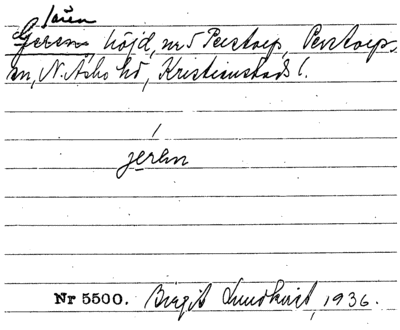 Jären
Geren, höjd, nr 5 Perstorp, Perstorps
sn, N. Åsbo hd, Kristianstads l.
jeren
Nr 5500. Birgit Lundkvist, 1936.